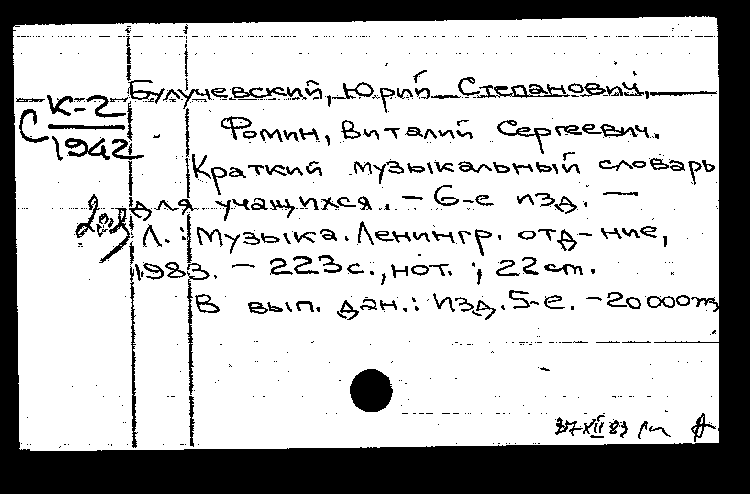 Булучевский, Юрий Степанович,
С К-2
1942
Фомин, Виталий Сергеевич.
Краткий музыкальный словарь
для учащихся. - 6-е изд. -
Л.: Музыка. Ленингр. отд-ние,
1983. - 223 с., нот. ; 22 см.
В вып. дан.: Изд. 5-е. - 20000 
XII 83